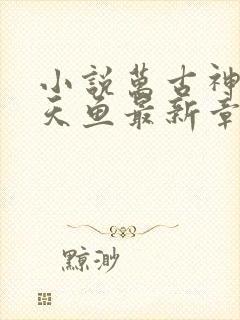 小説萬古神
天魚最新章
黥渺